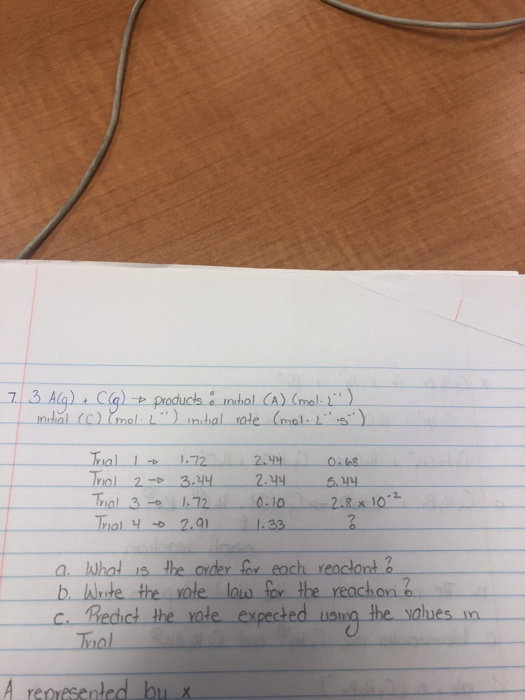 7. 3 A(g) + C(g) → products : initial (A) (mol·L⁻¹)
initial (C) (mol·L⁻¹) initial rate (mol·L⁻¹·s⁻¹)
Trial 1 → 1.72 2.44 0.68
Trial 2 → 3.44 2.44 5.44
Trial 3 → 1.72 0.10 2.8 x 10⁻²
Trial 4 → 2.91 1.33 ?
a. What is the order for each reactant?
b. Write the rate law for the reaction?
c. Predict the rate expected using the values in
Trial
A represented by x